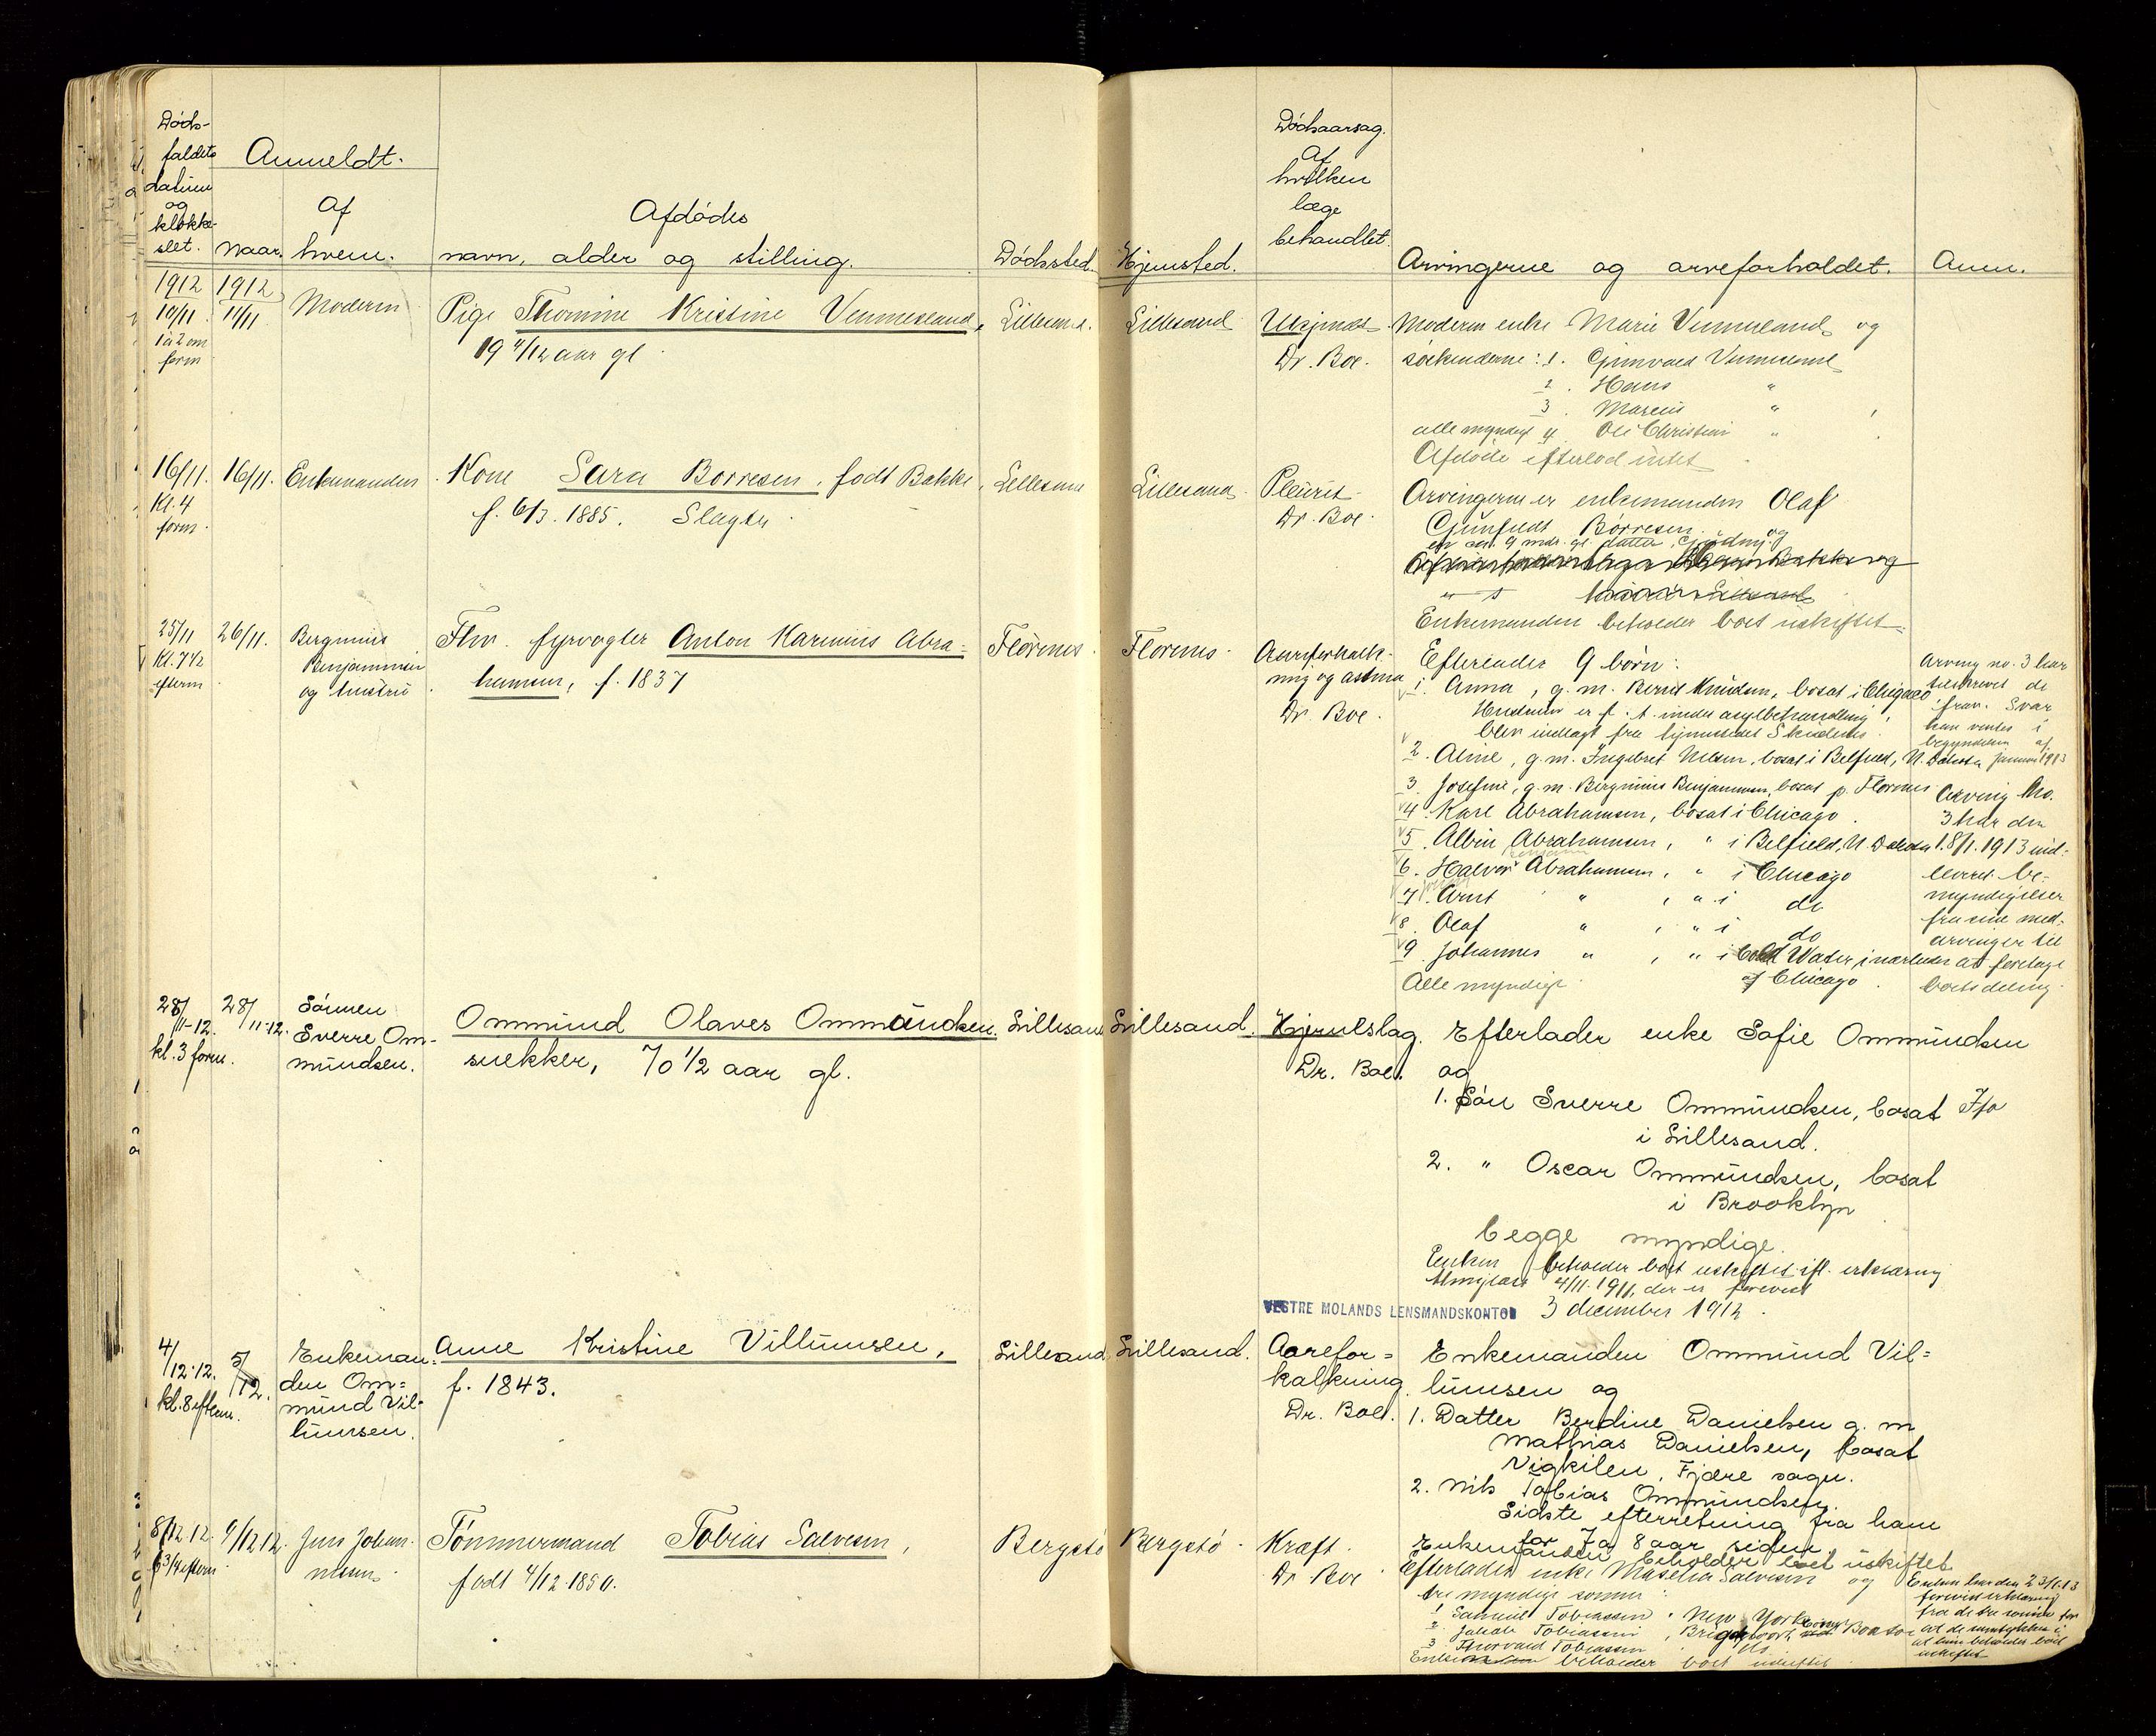 Døds-
faldets
datum
og
klokke-
slet.
Anmeldt.
naar.
af
hvem.
Afdødes
navn, alder og stilling.
Dødssted.
Hjemsted.
Dødsaarsag.
Af
hvilken
læge
behandlet.
Arvingerne og arveforholdet.
Anm.
1912
10/11
1 à 2 om
form
1912
11/11
Moderen
Pige Thomine Kristine Vennesland,
19 11/12 aar gl.
Lillesand.
Lillesand
Ukjendt
Dr. Boe.
Moderen enke Marie Vennesland og
søskenderne: 1. Vennesland
2. Hans "
3. Marcus "
alle myndige 4. Ole Christian "
Afdøde efterlod intet
16/11.
Kl. 4
form.
16/11.
Enkemanden
Kone Sara Børresen, født Bakke,
f. 6/3. 1885. Slagter
Lillesand
Lillesand.
Pleurit
Dr. Boe.
Arvingerne er enkemanden Olaf
Børresen og
en 9 mdr. gl. datter,
Enkemanden beholder boet uskiftet.
25/11
Kl. 7 1/2
efterm
26/11.
Berginius
Benjaminsen
og hustru
Fhv. fyrvogter Anton Karinius Abra=
hamsen, f. 1837
Florenes
Florenes.
Aareforkalk-
ning og astma
Dr. Boe.
Efterlader 9 børn:
1. Anna, g. m. Bernt Knudsen, bosat i Chicago
Hustruen er p. t. under asylbehandling,
blev indlagt fra hjemstedet
2. Aline, g. m. Ingebret Nilsen, bosat i Belfield, N. Dakota
3. Josefine, g. m. Berginius Benjaminsen, bosat p. Florenes
4. Karl Abrahamsen, bosat i Chicago.
5. Albin Abrahamsen, " i Belfield, N. Dakota
6. Halvor Abrahamsen, " i Chicago
7. Arnt " , " i do
8. Olaf " , " i do
9. Johannes " , " i Cold Water, i nærheden
af Chicago.
Alle myndige.
Arving no. 3 har
tilskrevet de
frav. Svar
kan ventes i
begyndelsen af
januar 1913
Arving No.
3 har den
18/1. 1913 ind-
leveret be-
myndigelser
fra sine med-
arvinger til
at foretage
boets deling.
28/
11-12.
kl. 3 form.
28/
11-12.
Sønnen
Sverre Om-
mundsen.
Ommund Olaves Ommundsen.
snekker, 70 1/2 aar gl.
Lillesand
Lillesand.
Hjerteslag.
Dr. Boe.
Efterlader enke Sofie Ommundsen
og
1. Søn Sverre Ommundsen, bosat
i Lillesand.
2. " Oscar Ommundsen, bosat
i Brooklyn
begge myndige.
Enken beholder boet uskiftet ifl. erklæring
4/11. 1911, der er forevist
VESTRE MOLANDS LENSMANDSKONTOR 3 december 1912.
4/
12-12.
kl. 8 efterm.
5/
12.
Enkeman=
den Om=
mund Vil-
lumsen.
Anne Kristine Villumsen,
f. 1843.
Lillesand
Lillesand.
Aarefor=
kalkning.
Dr. Boe.
Enkemanden Ommund Vil=
lumsen og
1. Datter Berdine Danielsen g. m
Mathias Danielsen, bosat
Vigkilen, Fjære sogn.
2. Nils Tobias Ommundsen.
Sidste efterretning fra ham
for 7 a 8 aar siden.
Enkemanden beholder boet uskiftet
8/12 12.
6 3/4 efterm
9/12 12.
Jens Johan-
nesen
Tømmermand Tobias Salvesen,
født 4/12 1850.
Bergstø
Bergstø.
Kræft.
Dr Boe
Efterlader enke Salvesen og
tre myndige sønner:
1 Samuel Tobiassen, New York
2 Jakob Tobiassen,
3 Thorvald Tobiassen
Enken beholder boet uskiftet.
Enken har den 23/1. 13
forevist erklæring
fra de tre sønner for
at de samtykker i
at hun beholder boet
uskiftet